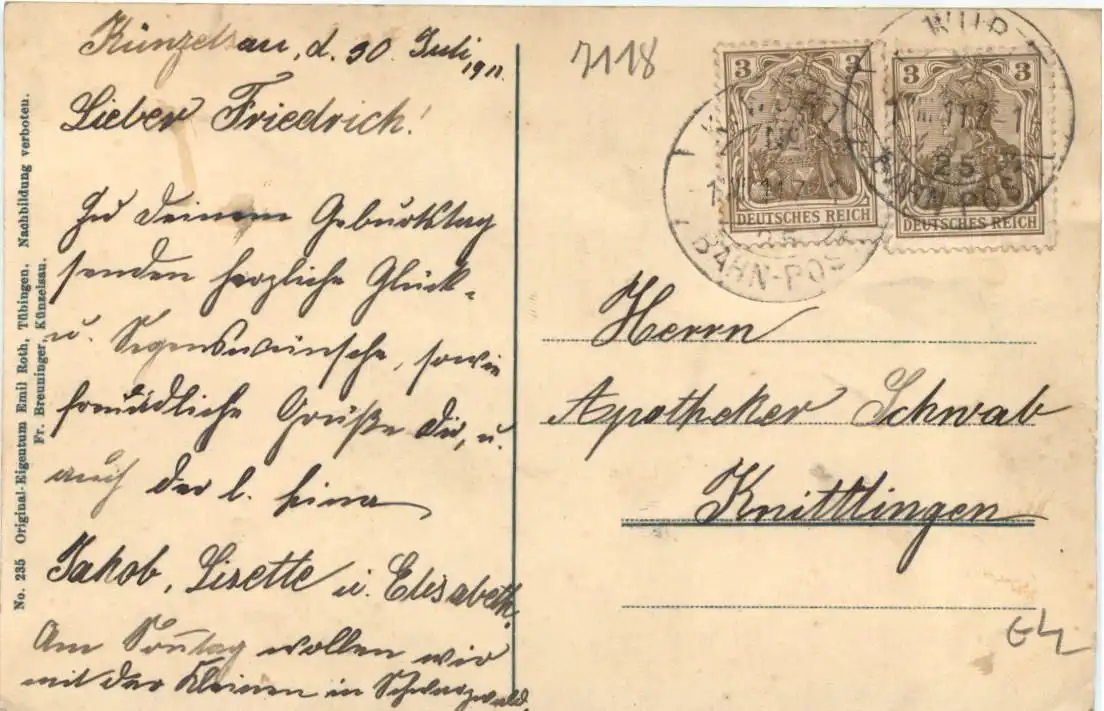 Künzelsau, d. 30. Juli
1911.
Lieber Friedrich!
Zu deinem Geburtstag
senden herzliche Glück-
u. Segenswünsche, sowie
freundliche Grüße dir, u.
auch der l.
Jakob, Lisette u. Elisabeth.
Am Sonntag wollen wir
mit der Kleinen in Schwarzwald.
No. 235 Original-Eigentum Emil Roth, Tübingen. Nachbildung verboten.
Fr. Breuninger, Künzelsau.
7118
3 3
DEUTSCHES REICH
3 3
DEUTSCHES REICH
BAHN-POST
25
BAHN-POS
Herrn
Apotheker Schwab
Knittlingen